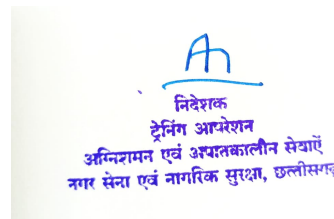 निदेशक
ट्रेनिंग आपरेशन
अग्निशमन एवं अपातकालीन सेवाऐं
नगर सेना एवं नागरिक सुरक्षा, छत्तीसगढ़